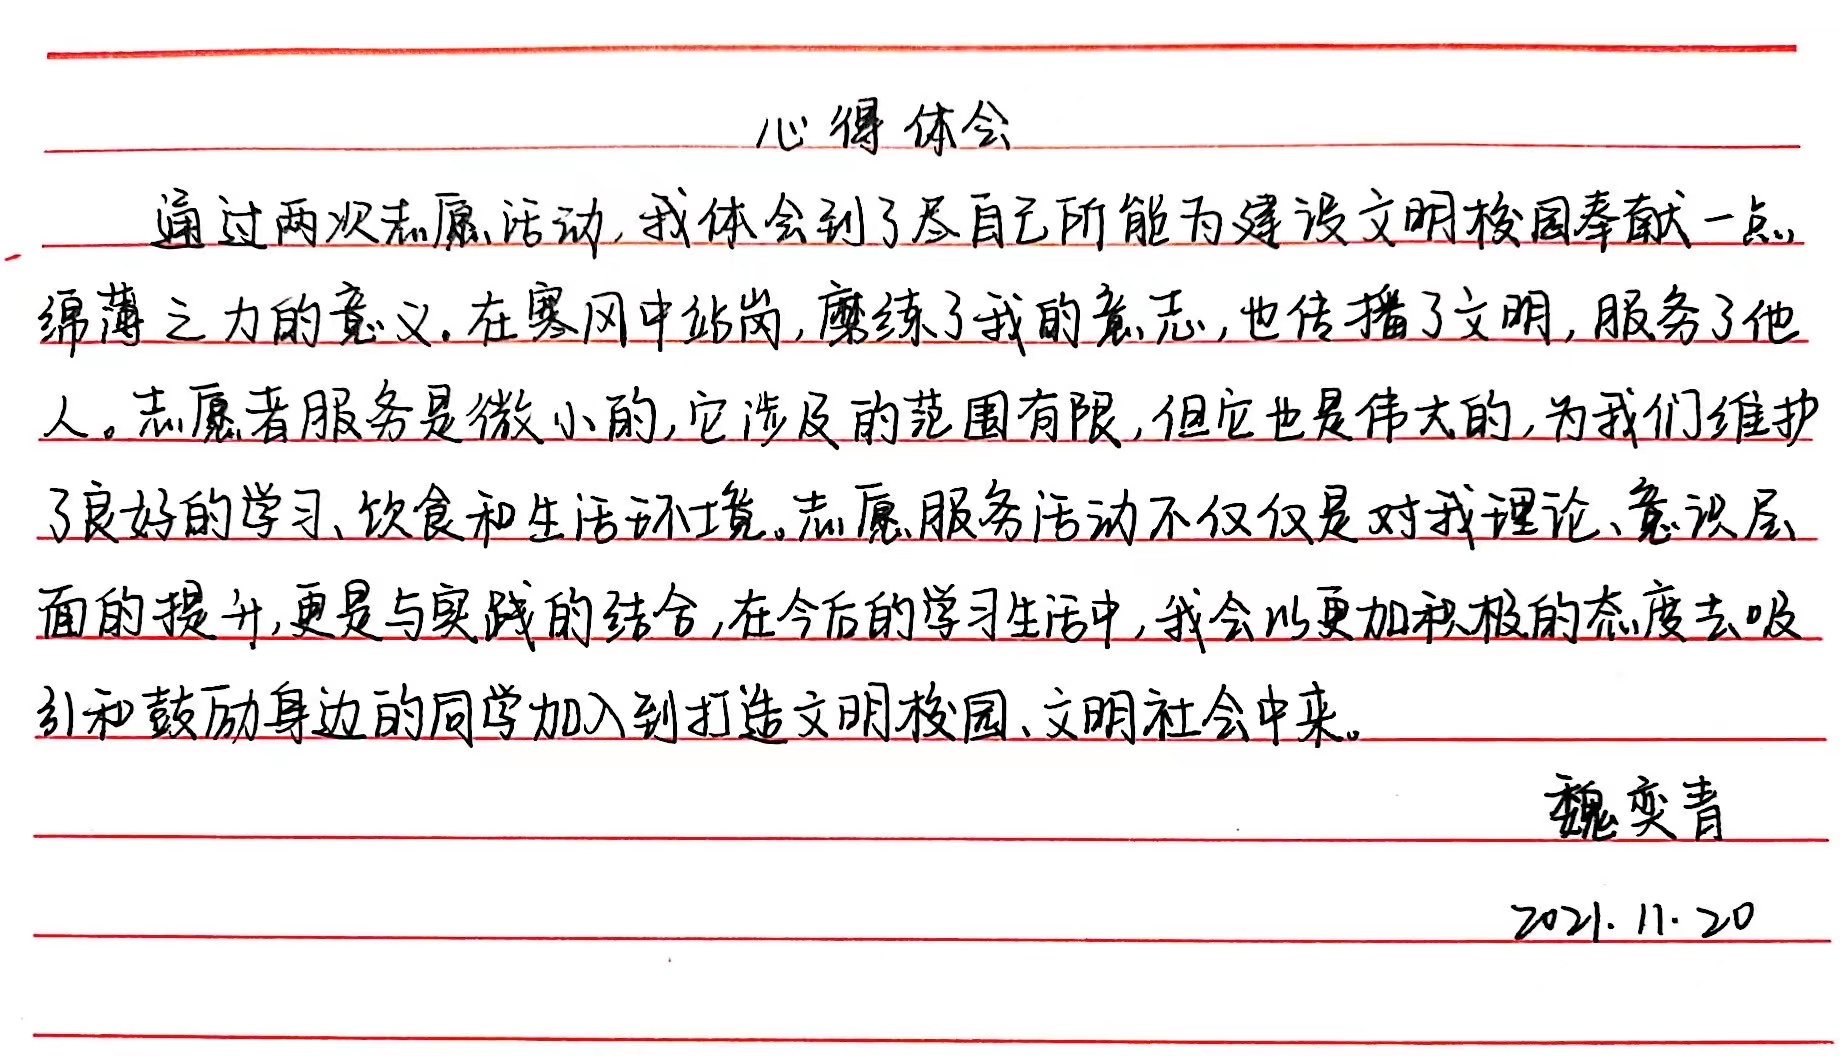 心得体会
通过两次志愿活动,我体会到了尽自己所能为建设文明校园奉献一点
绵薄之力的意义.在寒风中站岗,磨练了我的意志,也传播了文明,服务了他
人。志愿者服务是微小的,它涉及的范围有限,但它也是伟大的,为我们维护
了良好的学习、饮食和生活环境。志愿服务活动不仅仅是对我理论、意识层
面的提升,更是与实践的结合,在今后的学习生活中,我会以更加积极的态度去吸
引和鼓励身边的同学加入到打造文明校园、文明社会中来。
魏奕青
2021.11.20